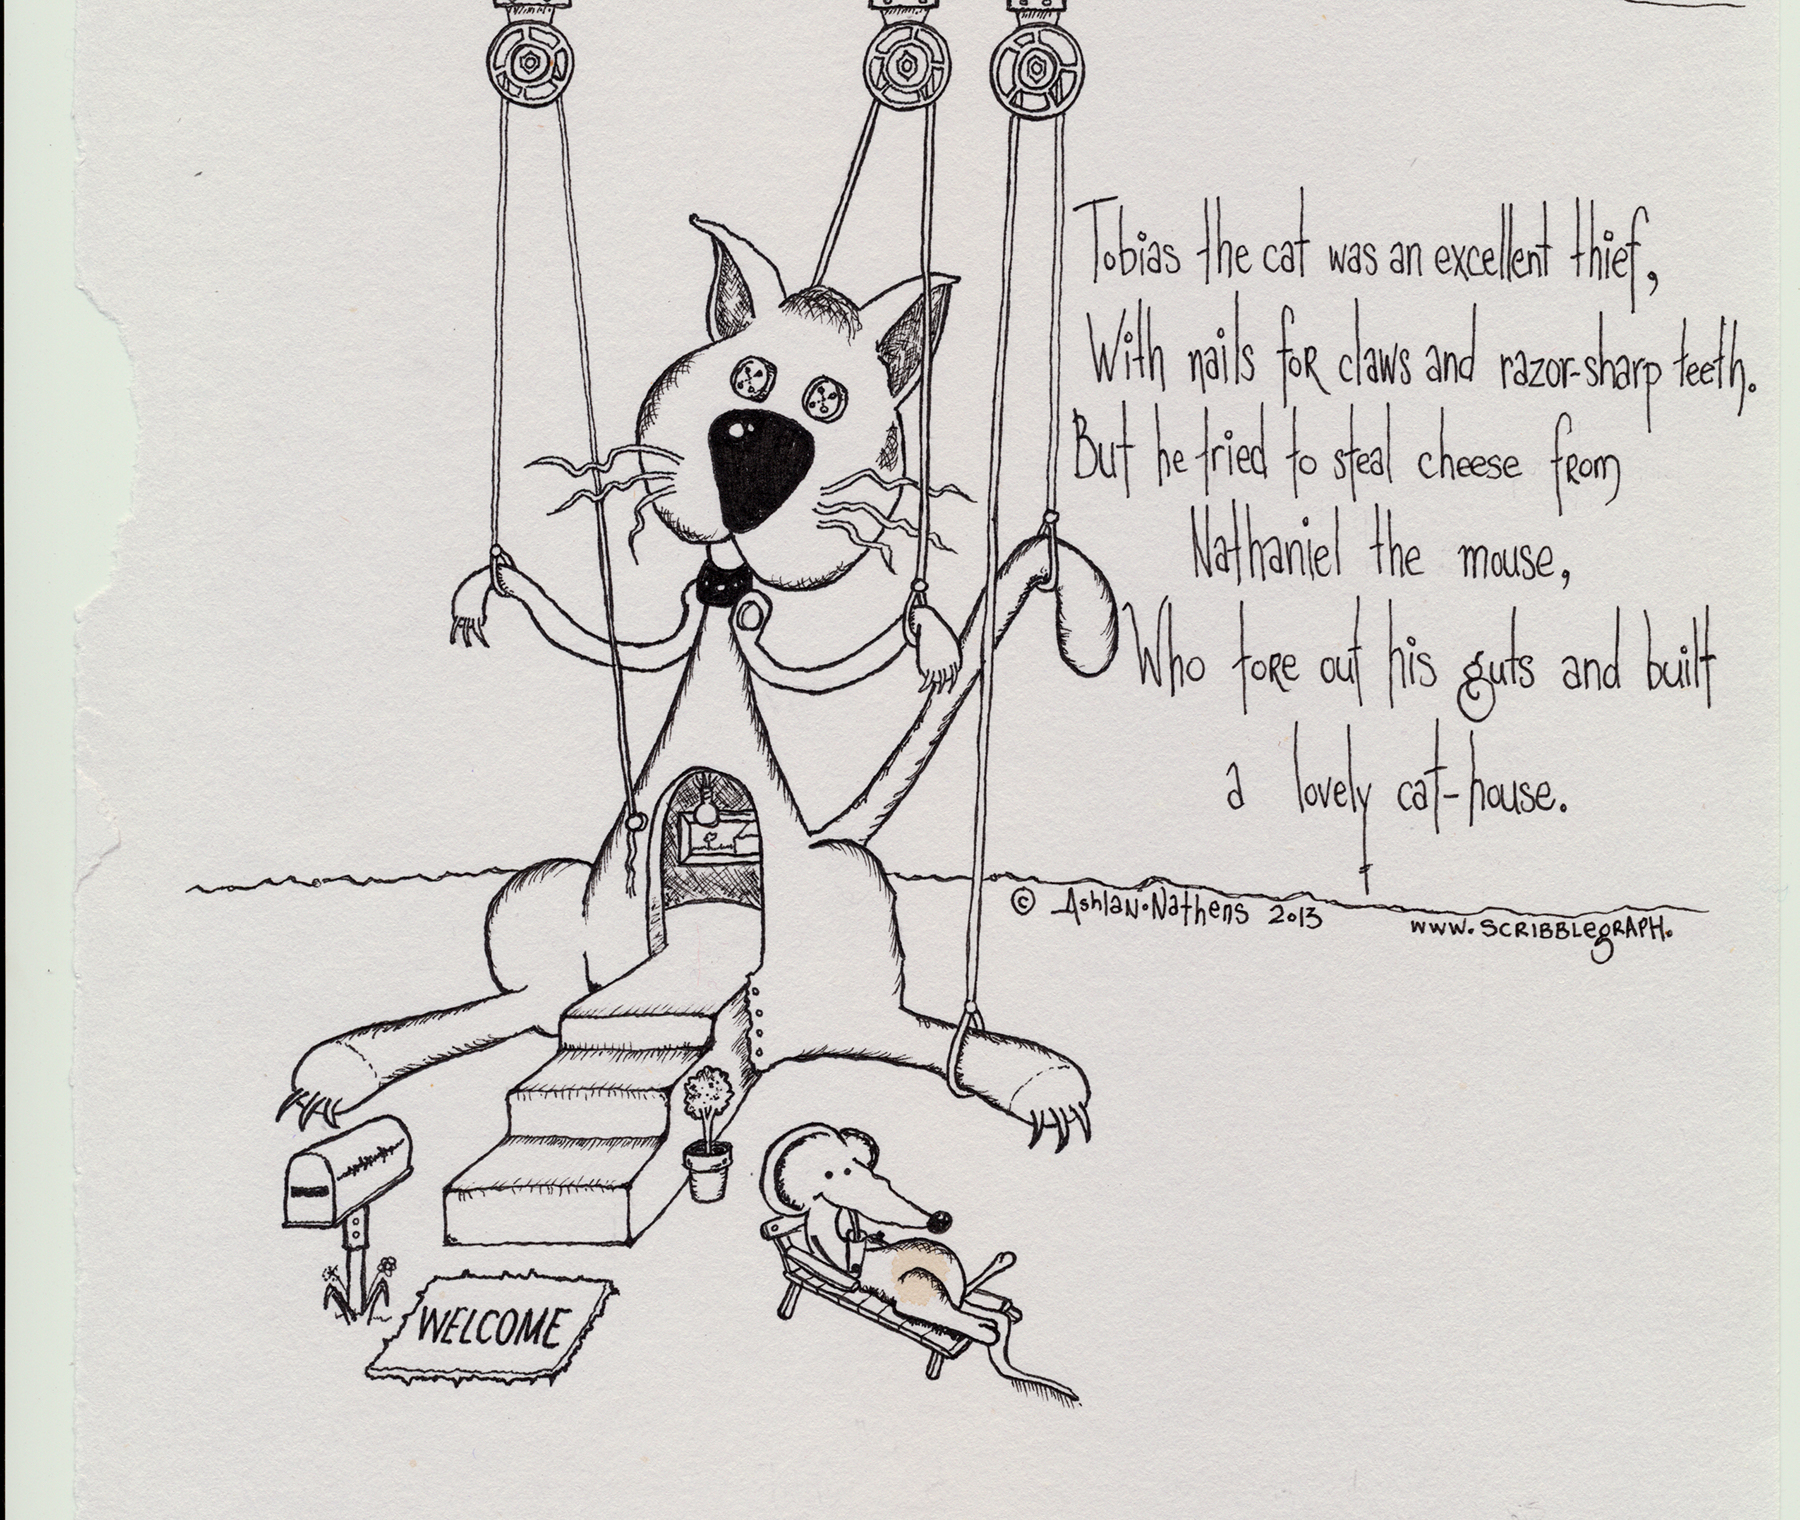 Tobias the cat was an excellent thief,
With nails for claws and razor-sharp teeth.
But he tried to steal cheese from
Nathaniel the mouse,
Who tore out his guts and built
a lovely cat-house.
© Ashlan·Nathens 2013
www.SCRIBBLEgRAPH.
WELCOME